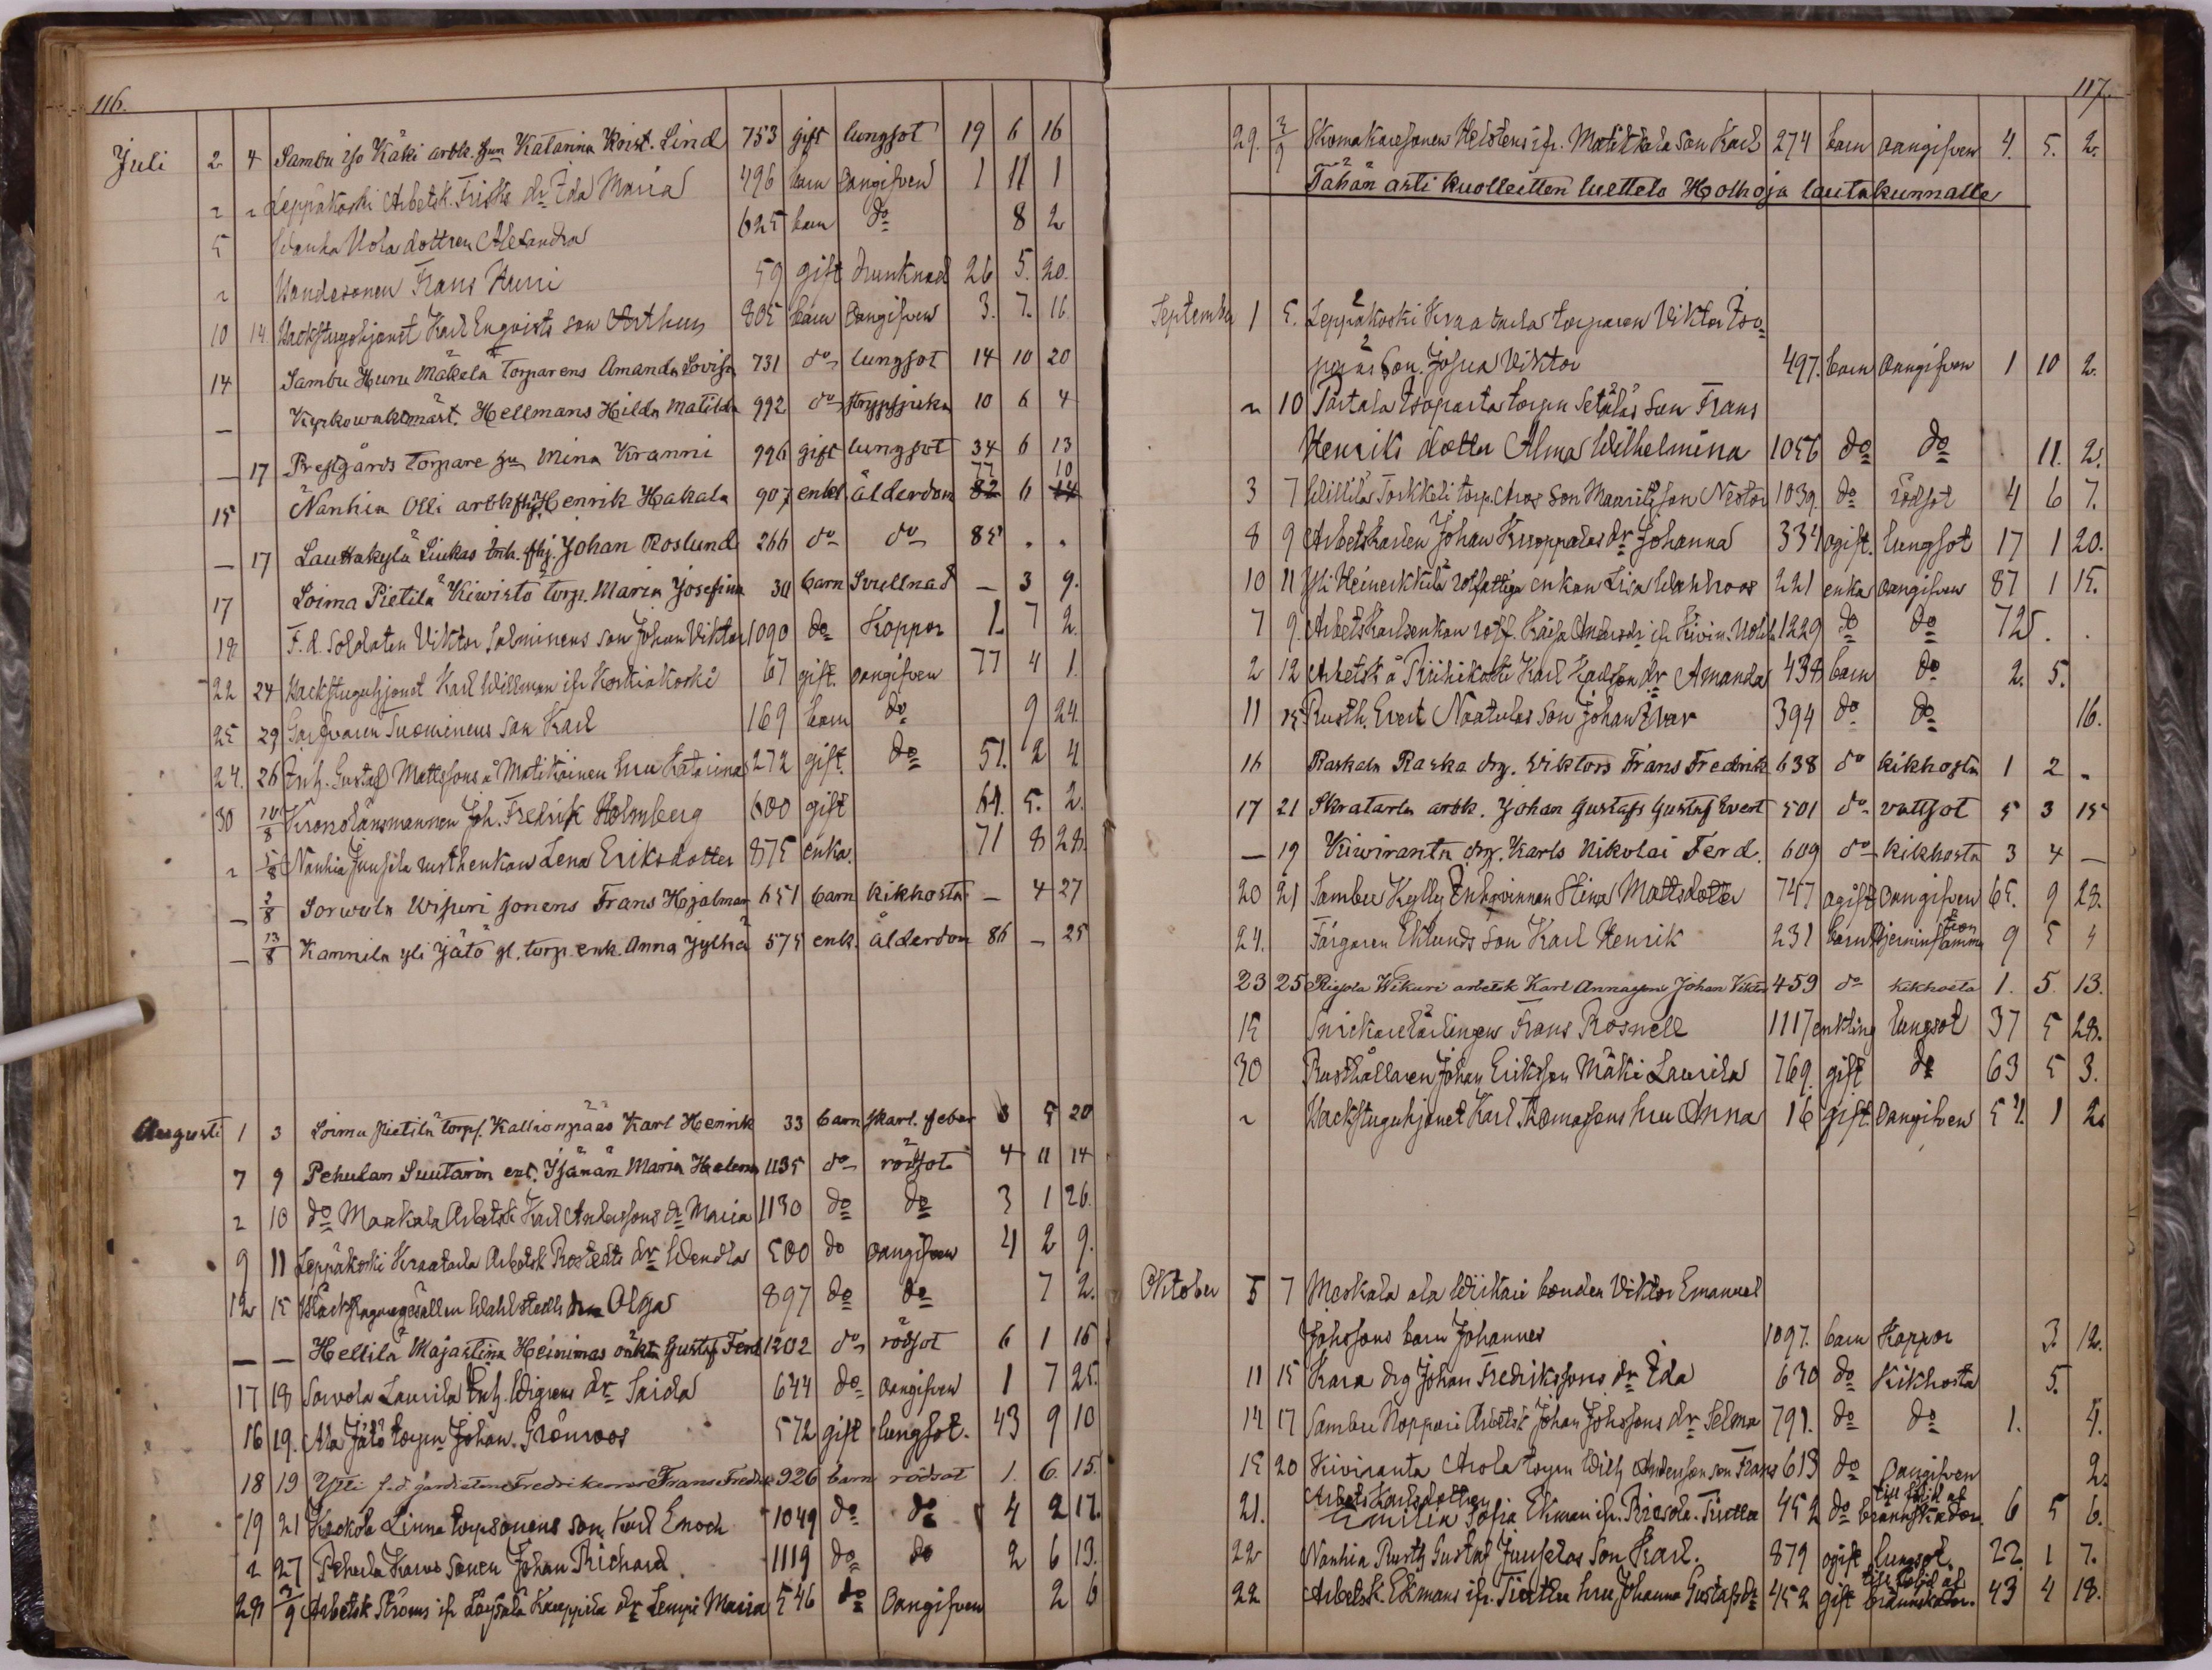 116.
Juli 2 4 Sambu iso Käki arbk. hun Katarina Krist. Lind 753 gift lungsot 19 6 16
" " Leppäkoski Arbetsk. Frisks dr Ida Maria 496 barn Oangifven 1 11 1
5 Uola dottren Alexandra 625 barn do 8 2
" Frans Huni 59 gift drunknad 26 5. 20.
10 14 Backstuguhjonet Karl Enqvists son Arthur 805 barn Oangifven 3. 7. 16
14 Sambu Huru Mäkelä torparens Amanda Lovisa 731 do lungsot 14 10 20
— Kyrkowaktmäst. Hellmans Hilda Matilda 992 do 10 6 4
— 17 Prestgårds torpare hu Mina Kranni 996 gift lungsot 34 6 13
15 Nanhia Olli arbk Henrik Hakala 907 enkl ålderdom 82 77 6 14 10
— 17 Lauttakylä Liukas inh. fhj. Johan Roslund 266 do do 85 . .
17 Loima Pietilä Kiwistö torp. Maria Josefina 30 barn Svullnad — 3 9.
18 F. d. Soldaten Viktor Salminens son Johan Viktor 1090 do Koppor 1. 7 2
22 24 Backstuguhjonet Karl Willman ifr Koskiakoski 67 gift. oangifven 77 4 1.
25 29 Garfvaren Tuominens son Karl 169 barn do 9 24.
24. 26 Inh. Gustaf Mattssons å Matikainen hru Katarina 272 gift. do 51. 2 4
30 10/8 Kronolänsmannen Joh. Fredrik Holmberg 600 gift 64. 5. 2.
" 5/8 Nanhia Juusila rusthenkan Lena Eriksdotter 875 enka. 71 8 28.
— 2/8 Sorwola Wipuri sonens Frans Hjalmar 651 barn kikhosta — 4 27
— 13/8 Kannila yli Jätö gl. torp. enk. Anna Jylhä 575 enk. ålderdom 86 — 25
Augusti 1 3 Loima Pietilä torp. Kallionpääs Karl Henrik 33 barn skarl. feber 3 5 20
7 9 Pehulan Suutarin Maria Helena 1135 do rödsot 4 11 14
" 10 do Maakala Arbetsk Karl Anderssons dr Maria 1130 do do 3 1 26.
9 11 Leppäkoski Kraatarla Arbetsk Rostedts dr Wendla 500 do oangifven 4 2 9.
12 15 Wahlstedts Olga 897 do do 7 2.
— — Hellilä Majastina Heinimas Gustaf Ferd 1202 do rödsot 6 1 16
17 18 Sorvola Laurila Inh. Wigrens dr Saida 644 do Oangifven 1 7 25.
16 19. Ala Jätö torpn Johan Grönroos 572 gift lungsot. 43 9 10
18 19 Ylli Frans Fredrik 926 barn rödsot 1. 6. 15.
19 21 Keckola Linna torpsonens son Karl Enoch 1049 do do 4 2 17.
" 27 Pehula Karus sonen Johan Richard 1119 do do 2 6 13.
28 2/9 Arbetsk Ströms ifr Kauppila dr Lempi Maria 546 do Oangifven 2 6
117.
29. 2/9 Skomakaresonen ifr. Matikkala son Karl 274 barn Oangifven 4. 5. 2.
Tähän asti kuolleitten luettelo Holhoja lautakunnalle
September 1 5. Leppäkoski Kraatarla torparen Viktor Iso-
perä son Josua Viktor 497. barn Oangifven 1 10 2.
" 10 Tartala Setäläs son Frans
Henriks dotter Alma Wilhelmina 1056 do do 11. 2.
3 7 Willilä Torkkeli torp. Aros son Maurits son Nestor 1039. do rödsot 4 6 7.
8 9 Arbetskarlen Johan Kuoppalas dr Johanna 334 ogift. lungsot 17 1 20.
10 11 Yli rotfattiga enkan Lisa Wahlroos 221 enka oangifven 87 1 15.
7 9. Arbetskarlsenkan rotf. Kaisa Andersdr ifr 1229 do do 72 . .
2 12 Arbetsk å Riihikoski Karl Karlsson dr Amanda 434 barn do 2. 5.
11 15 Rusth. Evert Naatulas son Johan Ivar 394 do do 16.
16 Raskala Raska drg. Viktors Frans Fredrik 638 do kikhosta 1 2 -
17 21 Skratarla arbk. Johan Gustafs Gustaf Evert 501 do vattsot 5 3 15
— 19 Kiwiranta drg. Karls Nikolai Ferd. 609 do kikhosta 3 4 —
20 21 Sambu Kylly Inhqvinnan Stina Mattsdotter 747 ogift Oangifven 65. 9 28.
24. Färgaren Eklunds son Karl Henrik 231 barn 9 5 4
23 25 Risola Wikuri arbetsk Karl Johan Viktor 459 do kikhosta 1. 5. 13.
15 Snickarelärlingen Frans Rosnell 1117 enkling lungsot 37 5 28.
30 Rusthållaren Johan Eriksson Mäki Laurila 769. gift do 63 5 3.
" Backstuguhjonet Karl Thomassons hru Anna 16 gift. Oangifven 57. 1 2.
Oktober 5 7 Meskala ala Wiikari bonden Viktor Emanuel
Johssons barn Johannes 1097. barn Koppor 3. 12.
11 15 Kara drg Johan Fredrikssons dr Ida 630 do Kikhosta 5.
14 17 Sambu Noppari Arbetsk Johan Johssons dr Selma 791. do do 1. 4.
15 20 Kiviranta Arola torpn Wilh Andersson son Frans 613 do Oangifven 2.
21. Arbetskarlsdottren Sofia Ekman ifr. Riesola Tiettu 452 do till följd af brännskador. 6 5 6.
22 Nanhia Rusth Gustaf Juusilas son Karl. 879 ogift lungsot. 22. 1 7.
22 Arbetsk. Ekmans ifr. Tiettu hru Johanna Gustafsdr 452 gift till följd af brännskador. 43 4 18.